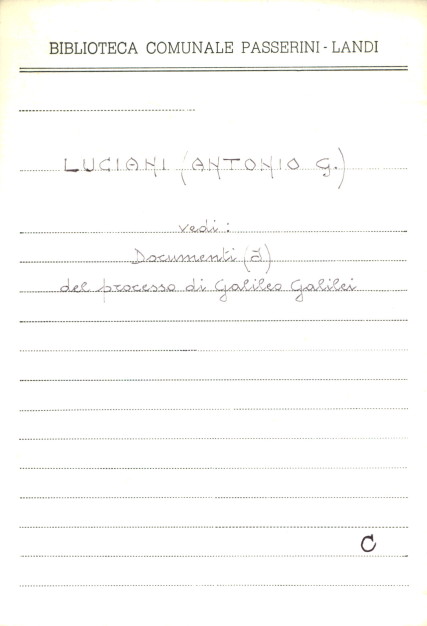 BIBLIOTECA COMUNALE PASSERINI - LANDI
LUCIANI (ANTONIO G.)
vedi :
Documenti (I)
del processo di Galileo Galilei
C